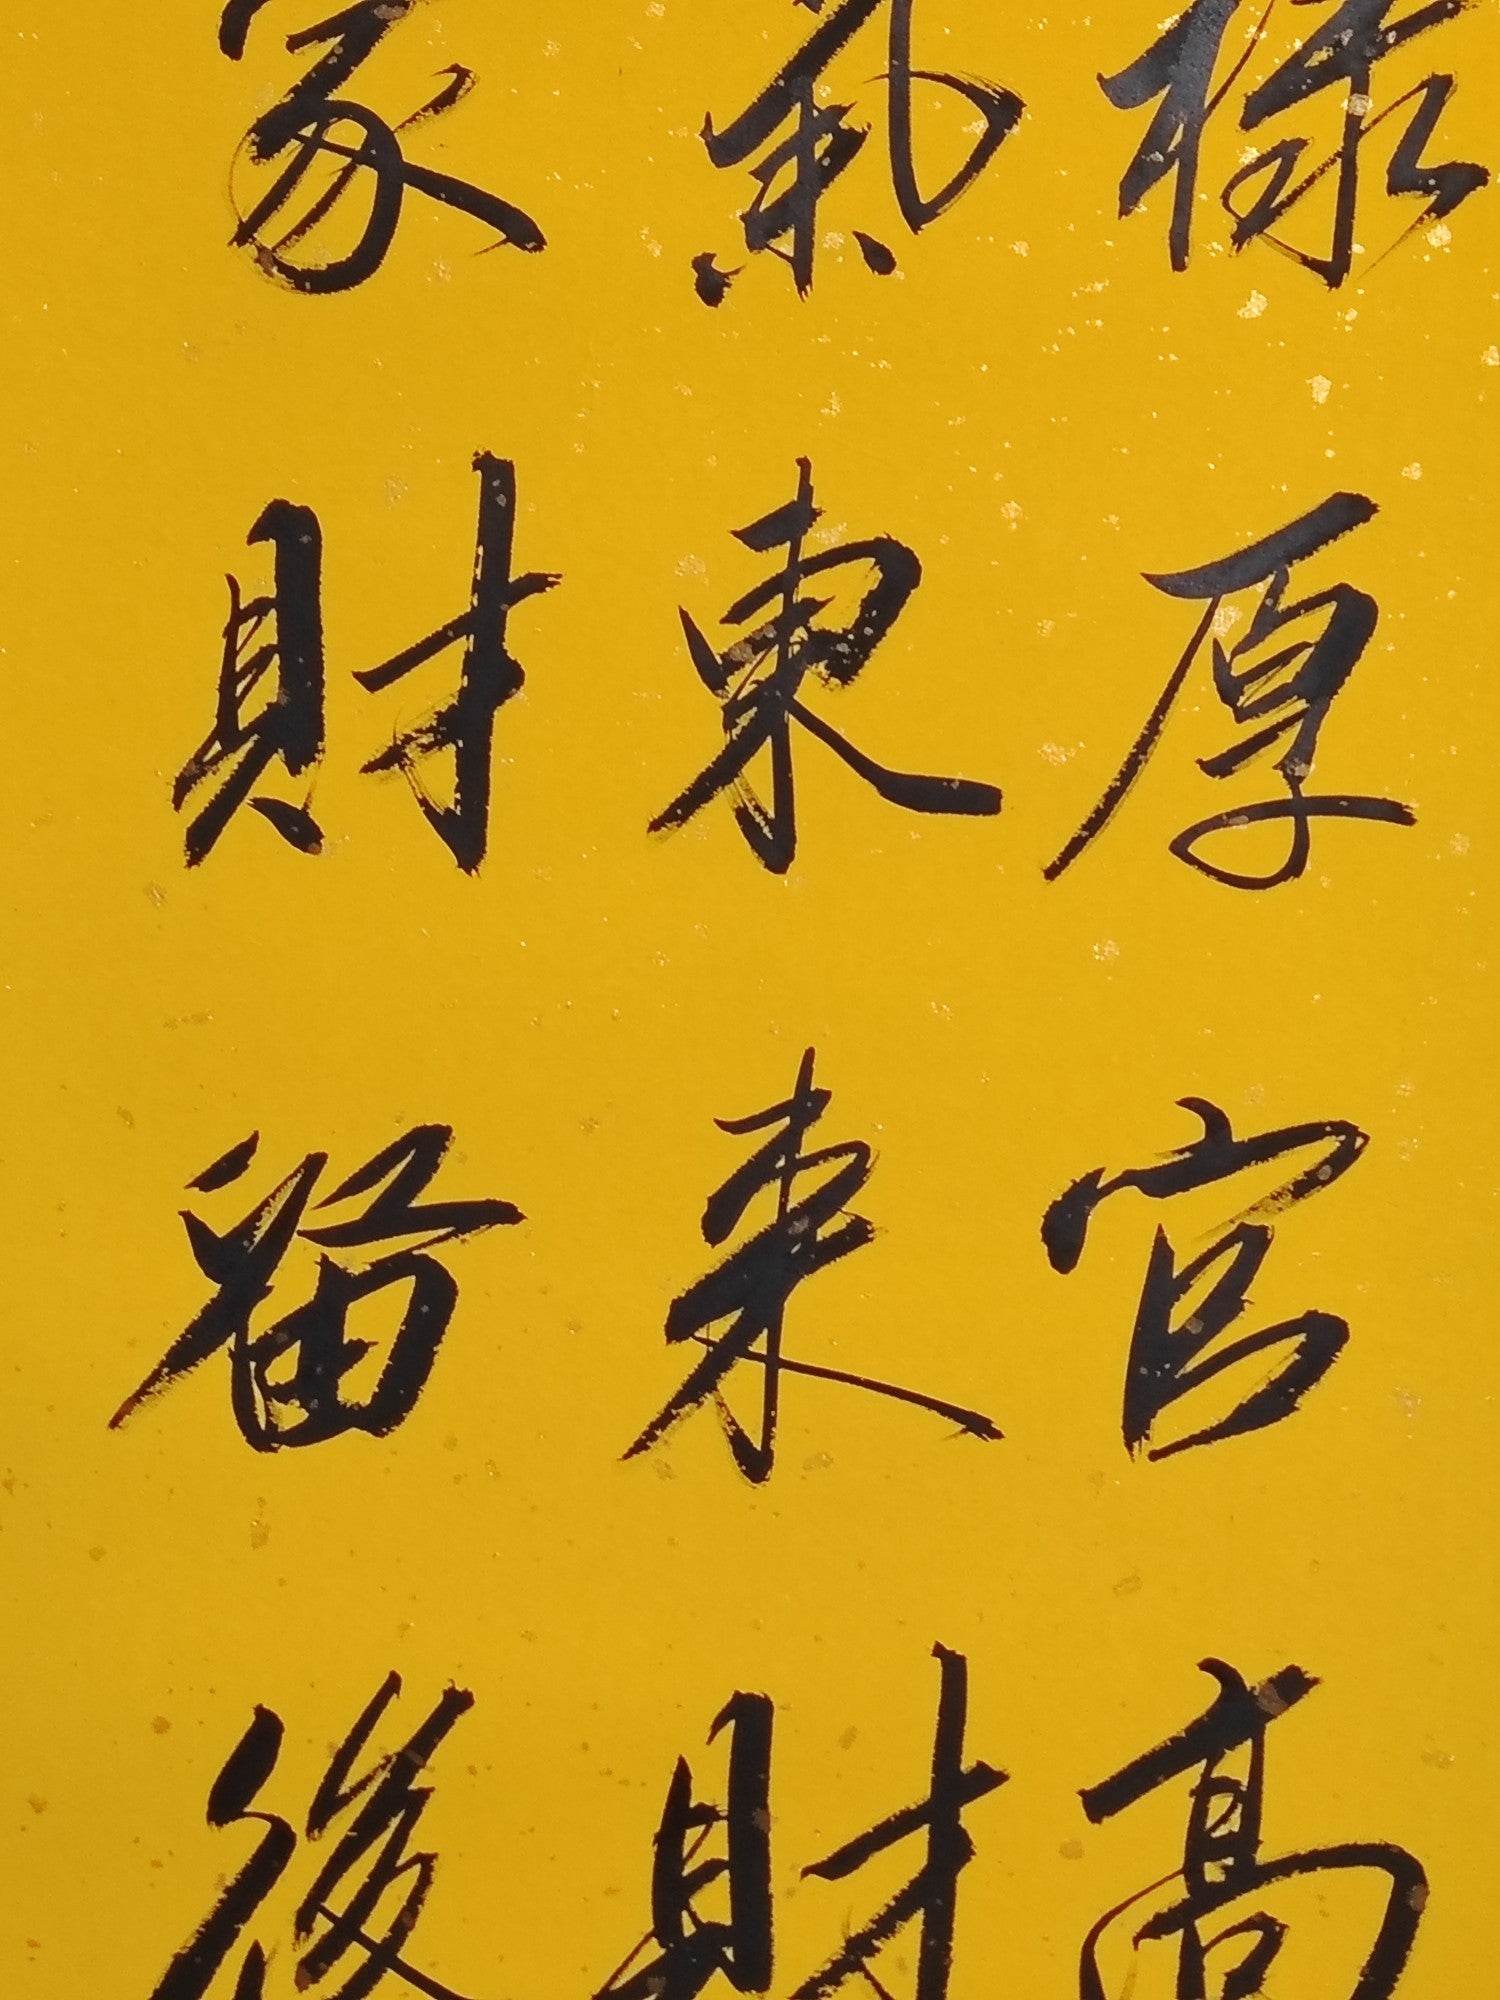 禄厚官高
氣東來財
家財留後